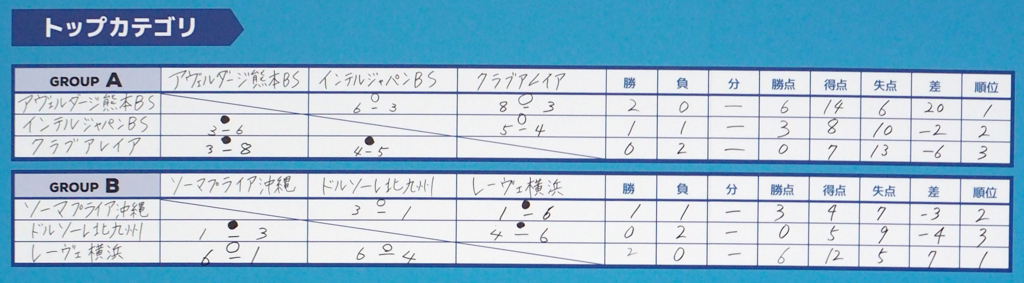 トップカテゴリ
GROUP A アヴェルダージ熊本BS インテルジャパンBS クラブアレイア 勝 負 分 勝点 得点 失点 差 順位
アヴェルダージ熊本BS 6 ○ー 3 8 ○ー 3 2 0 ー 6 14 6 20 1
インテルジャパンBS 3 ●ー 6 5 ○ー 4 1 1 ー 3 8 10 -2 2
クラブアレイア 3 ●ー 8 4 ●ー 5 0 2 ー 0 7 13 -6 3
GROUP B ソーマプライア沖縄 ドルソーレ北九州 レーヴェ横浜 勝 負 分 勝点 得点 失点 差 順位
ソーマプライア沖縄 3 ○ー 1 1 ●ー 6 1 1 ー 3 4 7 -3 2
ドルソーレ北九州 1 ●ー 3 4 ●ー 6 0 2 ー 0 5 9 -4 3
レーヴェ横浜 6 ○ー 1 6 ○ー 4 2 0 ー 6 12 5 7 1